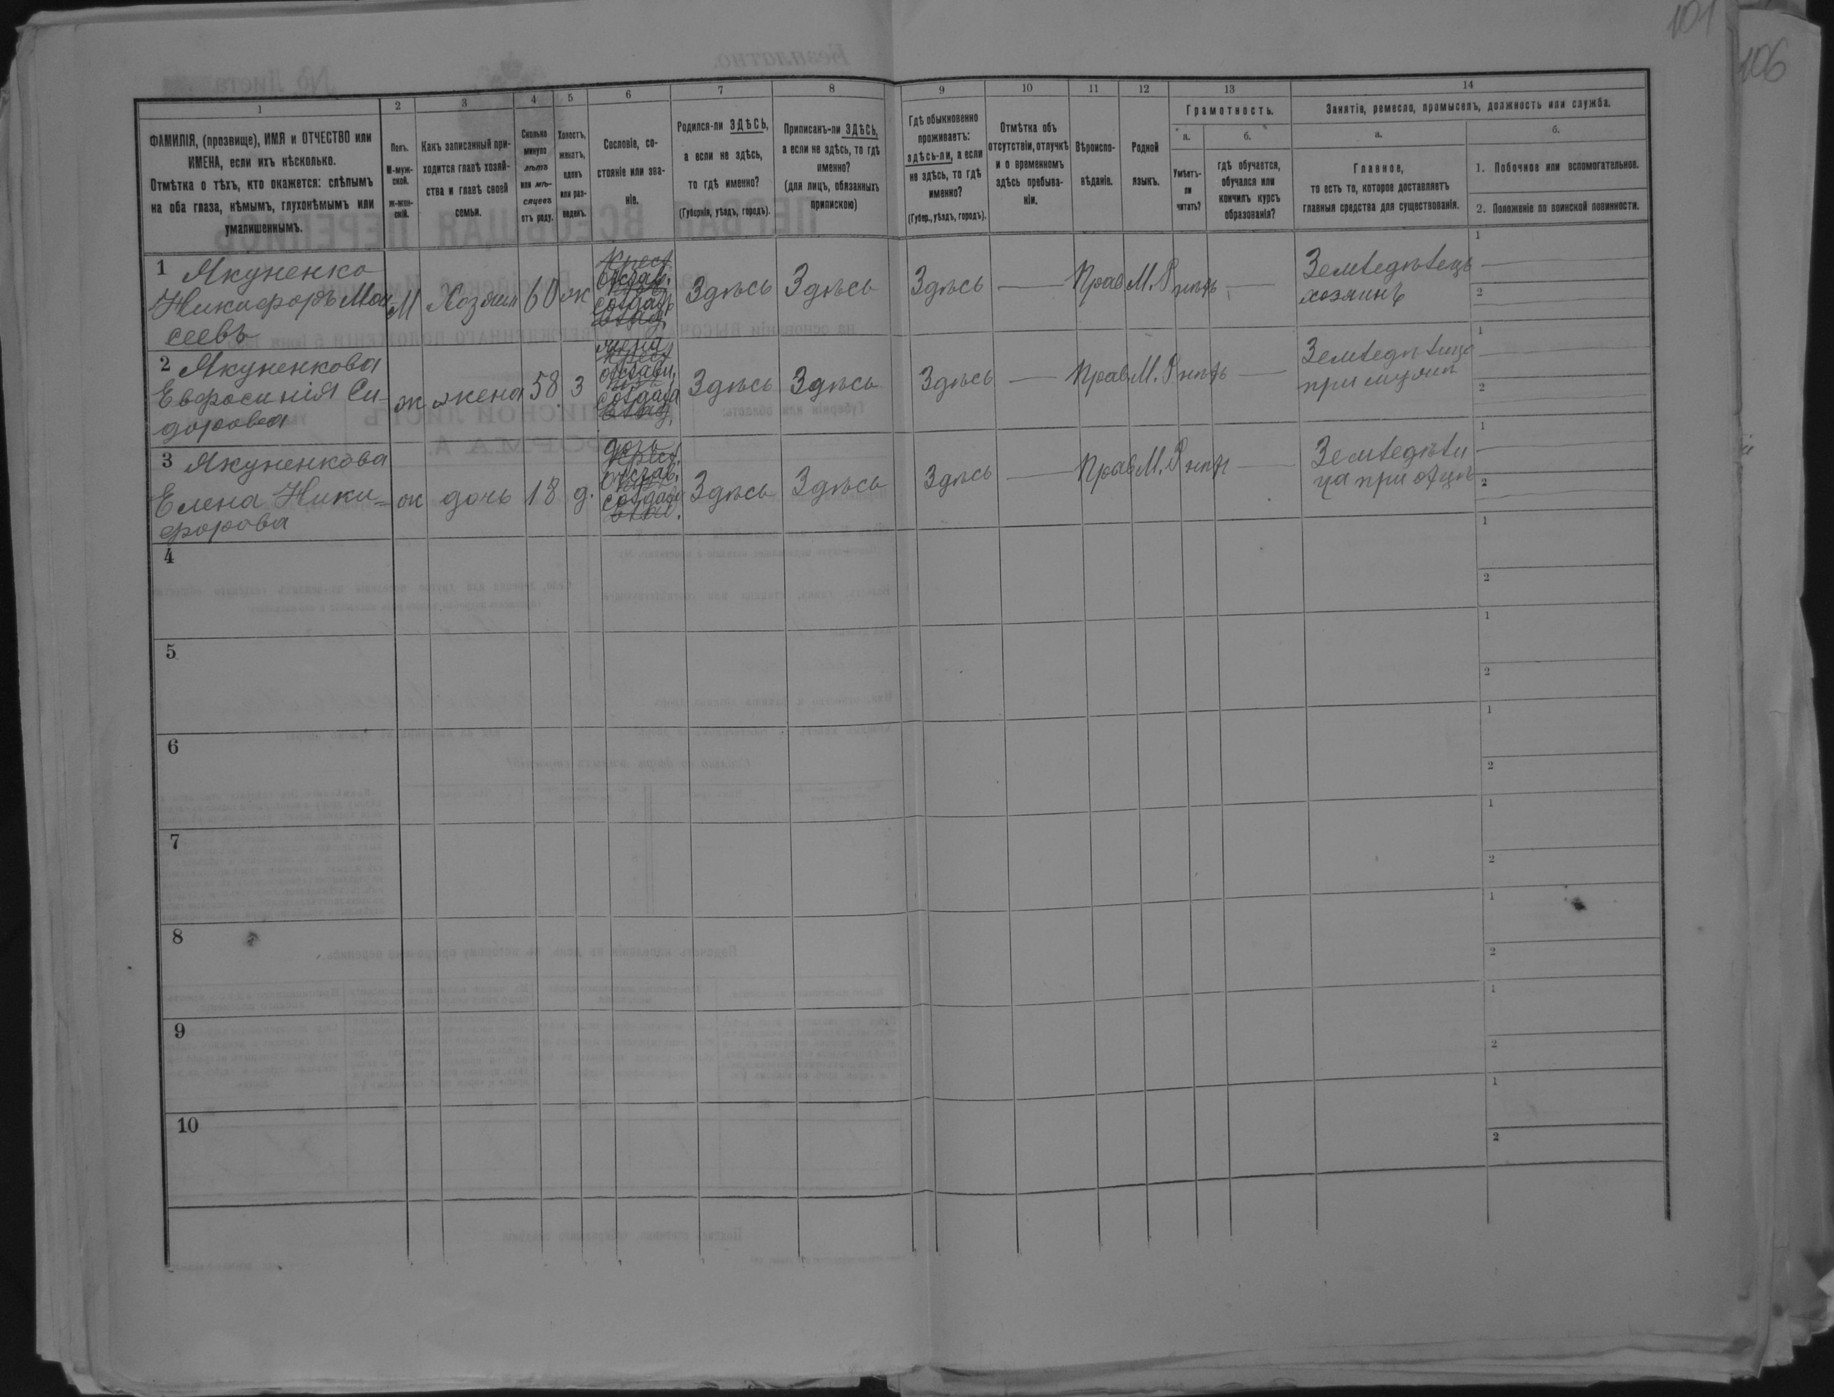 101
106
1
2
3
4
5
6
7
8
9
10
11
12
13
14
ФАМИЛІЯ, (прозвище), ИМЯ и ОТЧЕСТВО или
ИМЕНА, если ихъ нѣсколько.
Отмѣтка о тѣхъ, кто окажется: слѣпымъ
на оба глаза, нѣмымъ, глухонѣмымъ или
умалишеннымъ.
Полъ.
М-муж-
ской.
ж-жен-
скій.
Какъ записанный при-
ходится главѣ хозяй-
ства и главѣ своей
семьи.
Сколько
минуло
лѣтъ
или мѣ-
сяцевъ
отъ роду.
Холостъ,
женатъ,
вдовъ
или раз-
веденъ.
Сословіе, со-
стояніе или зва-
ніе.
Родился-ли ЗДѢСЬ,
а если не здѣсь,
то гдѣ именно?
(Губернія, уѣздъ, городъ).
Приписанъ-ли ЗДѢСЬ,
а если не здѣсь, то гдѣ
именно?
(для лицъ, обязанныхъ
припискою)
Гдѣ обыкновенно
проживаетъ:
здѣсь-ли, а если
не здѣсь, то гдѣ
именно?
(Губер., уѣздъ, городъ).
Отмѣтка объ
отсутствіи, отлучкѣ
и о временномъ
здѣсь пребыва-
ніи.
Вѣроиспо-
вѣданіе.
Родной
языкъ.
Грамотность.
а.
Умѣетъ-
ли
читать?
б.
гдѣ обучается,
обучался или
кончилъ курсъ
образованія?
Занятіе, ремесло, промыселъ, должность или служба.
а.
Главное,
то есть то, которое доставляетъ
главныя средства для существованія.
б.
1. Побочное или вспомогательное.
2. Положеніе по воинской повинности.
1 Якуненко
Никифоръ Мои
сеевъ
М
Хозяин
60
ж
Крест
Здѣсь
Здѣсь
Здѣсь
Прав
М. Р
нѣтъ
Земледѣлецъ
хозяинъ
1
2
2 Якуненкова
Евфросинія Си-
дорова
ж
жена
58
з
жена
Здѣсь
Здѣсь
Здѣсь
Прав
М. Р
нѣтъ
Земледѣлица
при мужѣ
1
2
3 Якуненкова
Елена Ники-
форова
ж
дочь
18
д.
дочь
Здѣсь
Здѣсь
Здѣсь
Прав
М. Р
нѣтъ
Земледѣли
ца при отцѣ
1
2
4
1
2
5
1
2
6
1
2
7
1
2
8
1
2
9
1
2
10
1
2